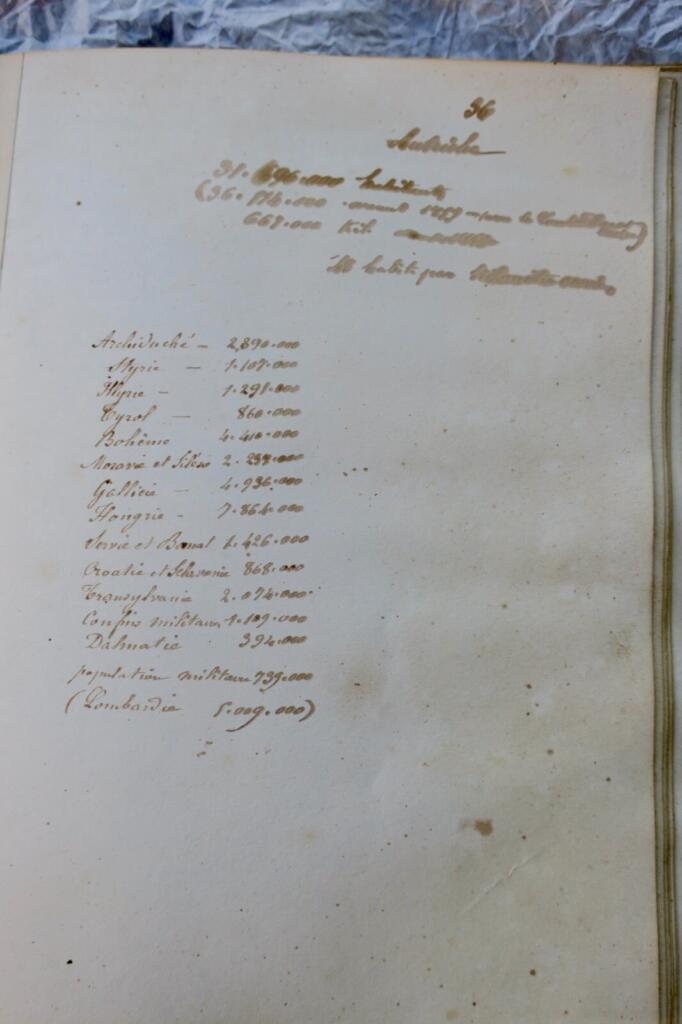 36
Autriche
31.696.000 habitants
(36.174.000 avant 1859 — avec le
667.000 kil.
habits par
Archiduché — 2,890.000
Styrie — 1.107.000
Illyrie — 1.291.000
Tyrol — 860.000
Bohême 4.410.000
Moravie et Silésie 2.238.000
Gallicie — 4.936.000
Hongrie — 7.864.000
Servie et Banat 1.426.000
Croatie et Sclavonie 868.000
Transylvanie 2.074.000
Confins militaires 1.109.000
Dalmatie 394.000
population militaire 739.000
(Lombardie 5.009.000)